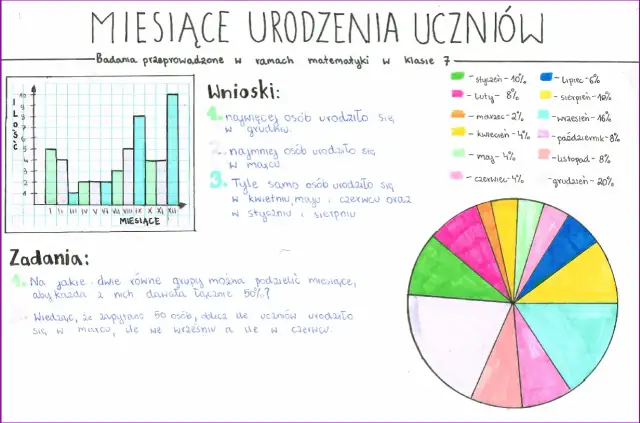 MIESIĄCE URODZENIA UCZNIÓW
Badania przeprowadzone w ramach matematyki w klasie 7
ILOŚĆ
10
9
8
7
6
5
4
3
2
1
I II III IV V VI VII VIII IX X XI XII
MIESIĄCE
Wnioski:
1. najwięcej osób urodziło się
w grudniu.
2. najmniej osób urodziło się
w marcu
3. Tyle samo osób urodziło się
w kwietniu, maju i czerwcu oraz
w styczniu i sierpniu
- styczeń - 10%
- luty - 8%
- marzec - 2%
- kwiecień - 4%
- maj - 4%
- czerwiec - 4%
- lipiec - 6%
- sierpień - 10%
- wrzesień - 16%
- październik - 8%
- listopad - 8%
grudzień - 20%
Zadania:
1. Na jakie dwie równe grupy można podzielić miesiące,
aby każda z nich dawała łącznie 50%?
Wiedząc, że zapytano 50 osób, oblicz ile uczniów urodziło
się w marcu, ile we wrześniu a ile w czerwcu.